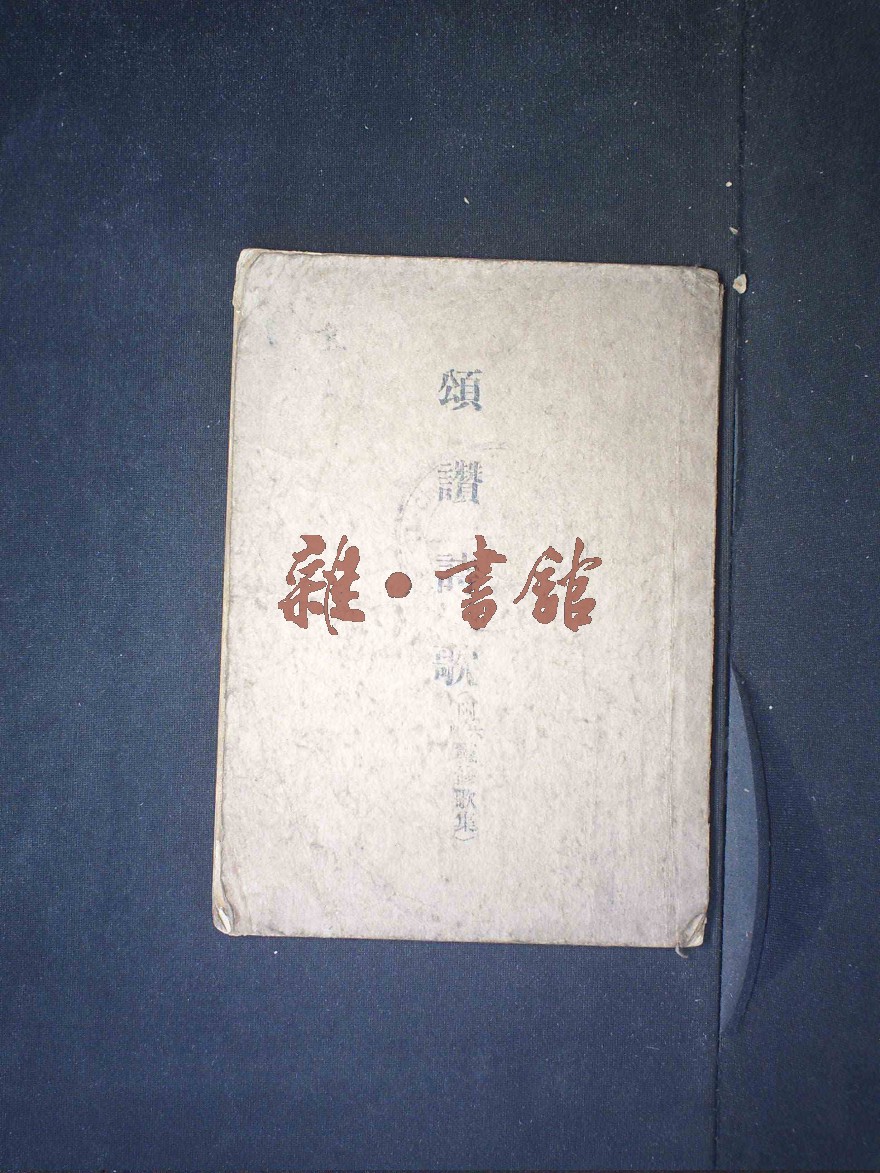 頌讚詩歌
歌集）
雜・書館